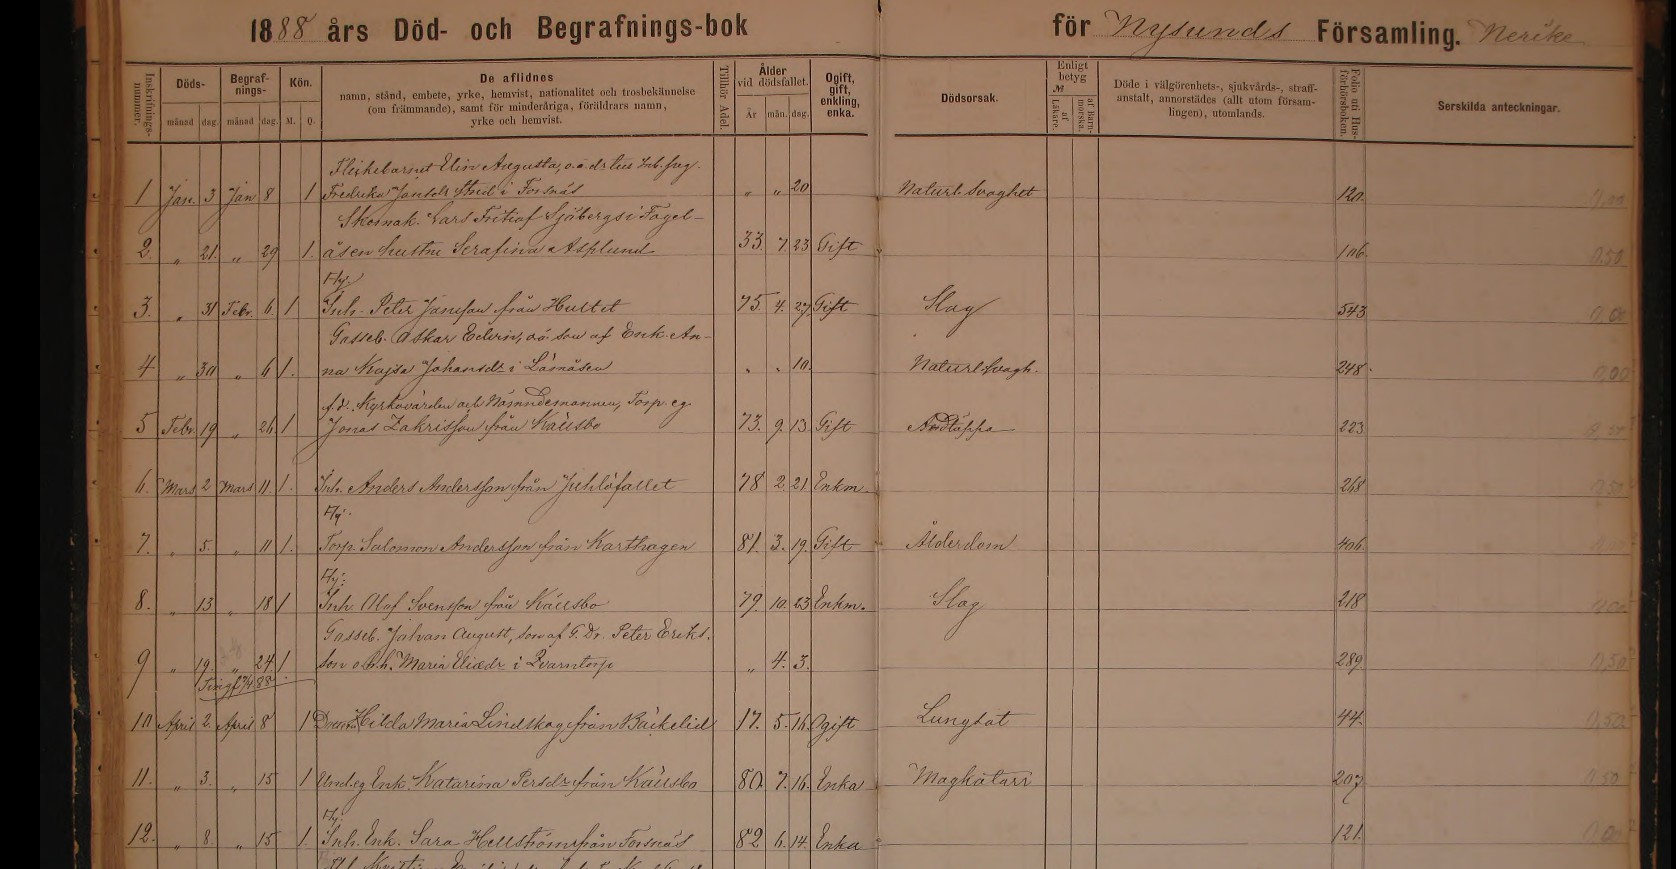 1888 års Död- och Begrafnings-bok för Nysunds Församling. Nerike
Inskrifnings-nummer.
Döds-
månad dag.
Begraf-nings-
månad dag.
Kön.
M. Q.
De aflidnes
namn, stånd, embete, yrke, hemvist, nationalitet och trosbekännelse
(om främmande), samt för minderåriga, föräldrars namn,
yrke och hemvist.
Tillhör Adel.
Ålder
vid dödsfallet.
År mån. dag.
Ogift,
gift,
enkling,
enka.
Dödsorsak.
Enligt
betyg
af Läkare.
af Barn-morska.
Döde i välgörenhets-, sjukvårds-, straff-
anstalt, annorstädes (allt utom försam-
lingen), utomlands.
Folio uti Hus-
förhörsboken.
Serskilda anteckningar.
Flickebarnet Elin Augusta, o.ä. dr till Inh. pig.
1 Jan. 3 Jan 8 1 Fredrika Jansdr i Forsnäs " " 20 Naturl. Svaghet 120.
Skomak. Lars Fritiof Sjöbergs i Fogel-
2. " 21. " 29 1. åsen hustru Serafina Asplund 33. 7. 23 Gift 106.
Fhj
3. " 31 Febr. 6. 1 Inh. Peter Jansson från Hultet 75. 4. 27. Gift Slag 543
Gosseb. Oskar Edvin, o.ä. son af Enk. An-
4 " 30 " 6 1. na Kajsa Johansdr i " " 10. Naturl. Svagh. 248.
f.d. Kyrkovärden och Nämndemannen, Torp. eg.
5 Febr. 19 " 26 1 Jonas Zakrisson från Källsbo 73. 9. 13. Gift Andtäppa 223
6. Mars 2 Mars 11. 1. Inh. Anders Andersson från 78 2 21 Enkm.
Fhj.
7. " 5. " 11 1. Torp. Salomon Andersson från Karthagen 81. 3. 19. Gift Ålderdom 406
Fhj.
8. " 13 " 18 1 Inh. Olof Svensson från Källsbo 79. 10. 23 Enkm. Slag 218
Gosseb. Johan August, son af G. Dr. Peter Eriks-
9 " 19. " 24 1 son o. h.h. Maria i Qvarntorp " 4. 3. 289
10 April 2. April 8 1 Hilda Maria Lindskog från Bäckelid 17. 5. 16. Ogift Lungsot 44.
11. " 3. " 15 1 Und. eg. Enk. Katarina Persdr från Källsbo 80. 7. 16. Enka Magkatarr 207
Fhj.
12. " 8. " 15 1. Inh. Enk. Sara Hellström från Forsnäs 82 6. 14. Enka 121.